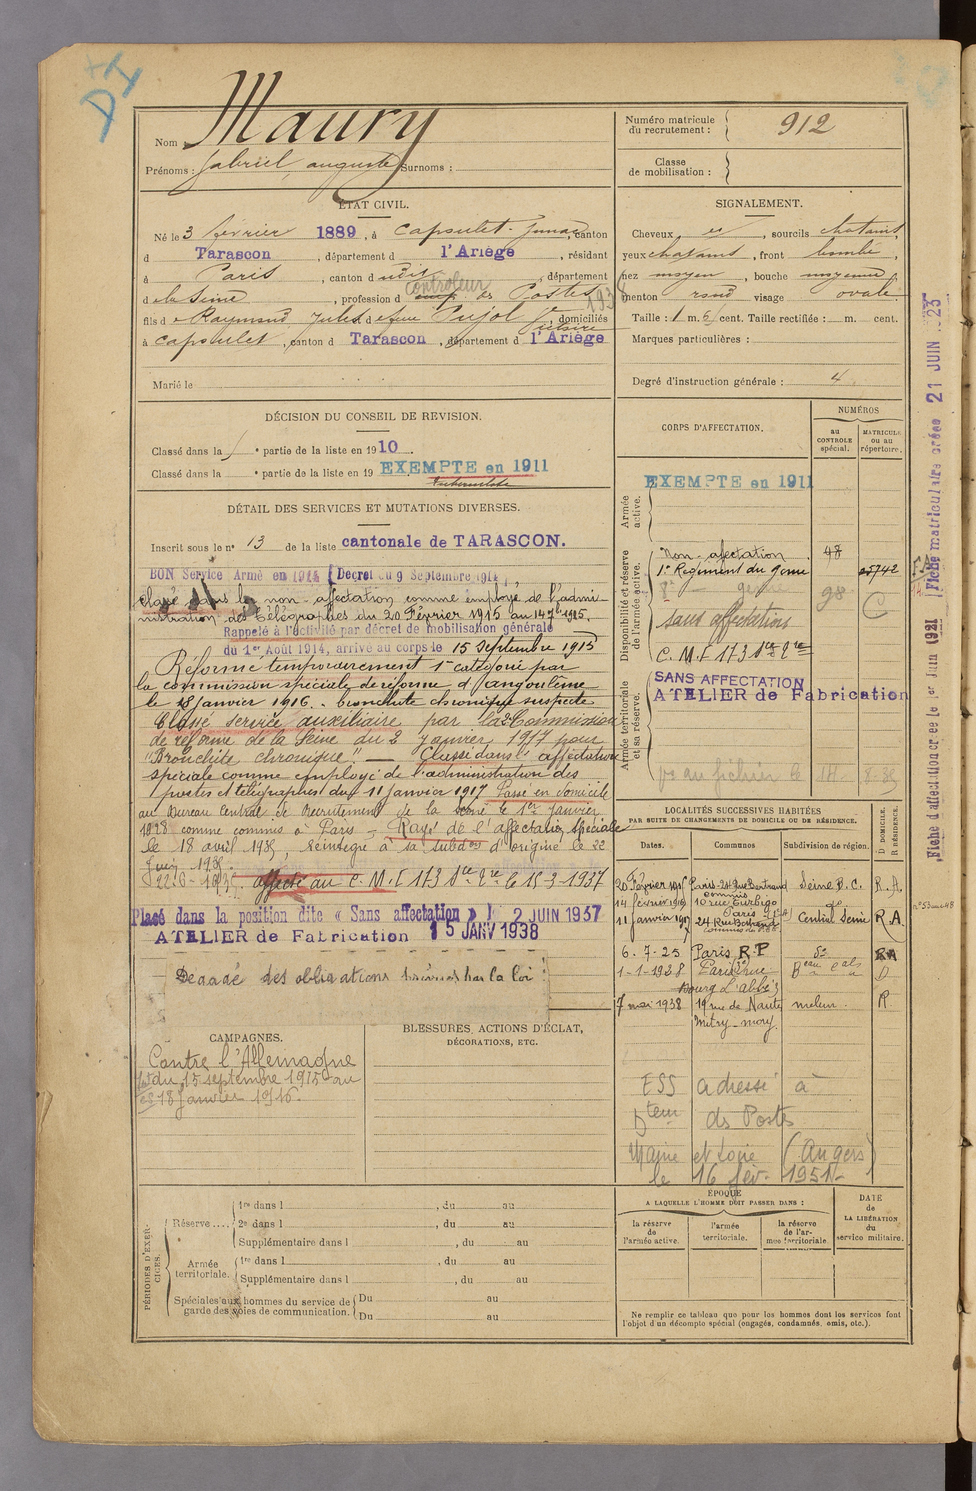 DI
Nom : Maury
Prénoms : Gabriel, auguste Surnoms :
Numéro matricule du recrutement : 912
Classe de mobilisation :
ÉTAT CIVIL.
Né le 3 février 1889, à Capoulet-Junac, canton
d Tarascon, département d l'Ariège, résidant
à Paris, canton d udit, département
d e la Seine, profession d controleur des Postes
fils d e Raymond Jules et d e feue Pujol Victoire, domiciliés
à Capoulet, canton d Tarascon, département d l'Ariège
Marié le
SIGNALEMENT.
Cheveux, sourcils chatains,
yeux chatains, front bombé,
nez moyen, bouche moyenne
menton rond visage ovale
Taille : 1 m. 6 cent. Taille rectifiée : m. cent.
Marques particulières :
Degré d'instruction générale : 4
DÉCISION DU CONSEIL DE REVISION.
Classé dans la e partie de la liste en 1910.
Classé dans la e partie de la liste en 19 EXEMPTÉ en 1911
tuberculose
DÉTAIL DES SERVICES ET MUTATIONS DIVERSES.
Inscrit sous le n° 13 de la liste cantonale de TARASCON.
BON Service Armé en 1914 (Decret du 9 Septembre 1914),
classé dans la non-affectation comme employé de l'admi-
nistration des Télégraphes du 20 Février 1915 au 14 7bre 1915.
Rappelé à l'activité par décret de mobilisation générale
du 1er Août 1914, arrivé au corps le 15 septembre 1915
Réformé temporairement 1e catégorie par
la commission spéciale de réforme d'angoulême
le 18 janvier 1916. bronchite chronique suspecte
Classé service auxiliaire par la Commission
de réforme de la Seine du 2 janvier 1917 pour
"Bronchite chronique". — Classé dans l'affectation
spéciale comme employé de l'administration des
postes et télégraphes du 11 janvier 1917 Passé en domicile
au Bureau Central de Recrutement de la Seine le 1er janvier
1928 comme commis à Paris - Rayé de l'affectation spéciale
le 18 avril 1935, réintégré à sa subdon d'origine le 22
Juin 1935.
22-6-1935. affecté au C. M. I 173 le 15-3-1937
Placé dans la position dite « Sans affectation » 2 JUIN 1937
ATELIER de Fabrication 15 JANV 1938
Dégagé des obligations par la loi
CORPS D'AFFECTATION.
NUMÉROS
au CONTROLE spécial.
MATRICULE ou au répertoire.
Armée active.
EXEMPTÉ en 1911
Disponibilité et réserve de l'armée active.
Non-affectation 98
1er Régiment du génie 25742
8e — génie 98
sans affectation
C. M. I 173
Armée territoriale et sa réserve.
SANS AFFECTATION
ATELIER de Fabrication
Vu au fichier le 8-35
LOCALITÉS SUCCESSIVES HABITÉES
PAR SUITE DE CHANGEMENTS DE DOMICILE OU DE RÉSIDENCE.
Dates. Communes Subdivision de région. D DOMICILE. R RÉSIDENCE.
20 Février 1915 Paris 24 Rue Bertrand Seine B.C. R.A.
14 février 1919 10 rue Turbigo do
11 janvier 1917 24 Rue Bertrand Central Seine R.A
6.7.25 Paris R.P do RA
1-1-1928 Paris rue D
Bourg l'abbé
7 mai 1938 19 rue de Nantes melun. R
Mitry-mory
ESS adressé à
des Postes
Maine et Loire (Angers)
le 16 fév. 1951
CAMPAGNES.
Contre l'Allemagne
du 15 septembre 1915 au
18 janvier 1916.
BLESSURES, ACTIONS D'ÉCLAT, DÉCORATIONS, ETC.
PÉRIODES D'EXERCICES.
Réserve .... 1re dans l , du au
2e dans l , du au
Supplémentaire dans l , du au
Armée territoriale. 1re dans l , du au
Supplémentaire dans l , du au
Spéciales aux hommes du service de garde des voies de communication. Du au
Du au
ÉPOQUE A LAQUELLE L'HOMME DOIT PASSER DANS :
la réserve de l'armée active.
l'armée territoriale.
la réserve de l'armée territoriale
DATE de LA LIBÉRATION du service militaire.
Ne remplir ce tableau que pour les hommes dont les services font
l'objet d'un décompte spécial (engagés, condamnés, omis, etc.).
Fiche matriculaire créée 21 JUIN 1925
Fiche d'affectation créée le 1er Juin 1921